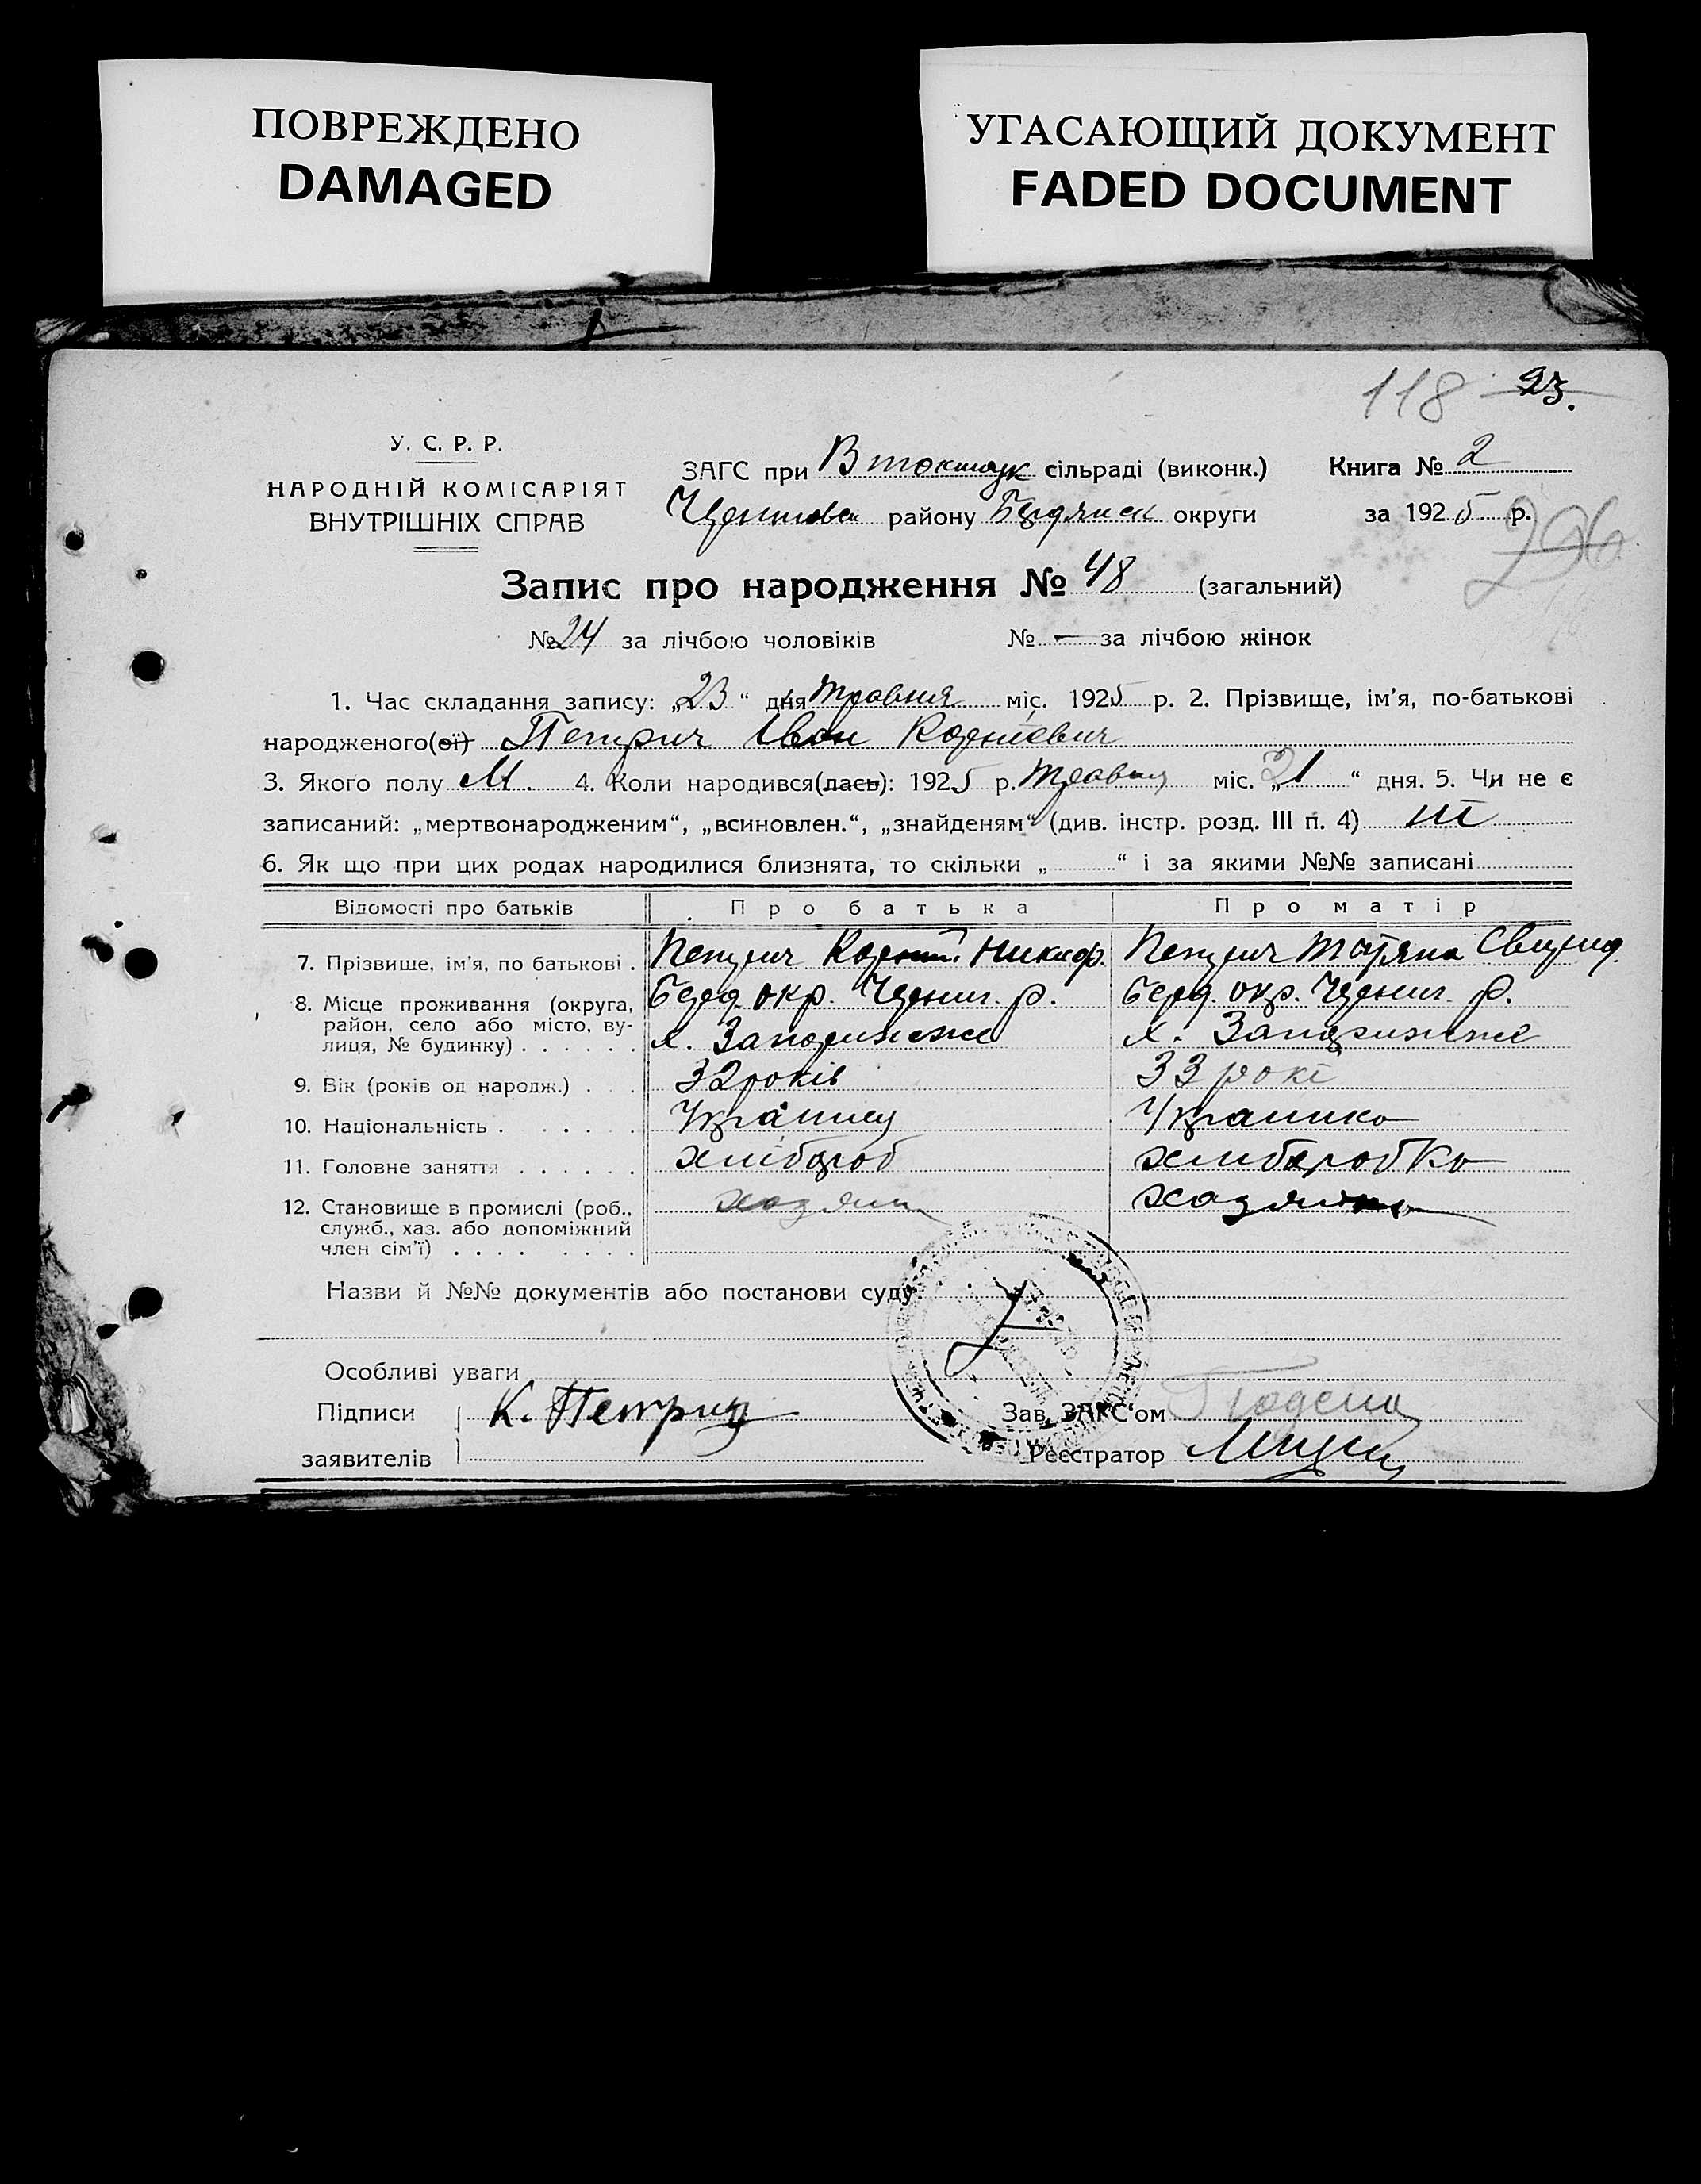 ПОВРЕЖДЕНО
DAMAGED
УГАСАЮЩИЙ ДОКУМЕНТ
FADED DOCUMENT
118 23.
У. С. Р. Р.
НАРОДНІЙ КОМІСАРІЯТ
ВНУТРІШНІХ СПРАВ
ЗАГС при В токмацк сільраді (виконк.) Книга № 2
району Бердянськ округи за 1925 р.
296
Запис про народження № 48 (загальний)
№ 24 за лічбою чоловіків № — за лічбою жінок
1. Час складання запису: „23“ дня травня міс. 1925 р. 2. Прізвище, ім'я, по-батькові
народженого(ої) Петрич Іван Корнієвич
3. Якого полу М. 4. Коли народився(лась): 1925 р. травня міс. „21“ дня. 5. Чи не є
записаний: „мертвонародженим“, „всиновлен.“, „знайденям“ (див. інстр. розд. III п. 4)
6. Як що при цих родах народилися близнята, то скільки „ “ і за якими №№ записані
Відомості про батьків Про батька Про матір
7. Прізвище, ім'я, по батькові . Петрич Корній Никиф. Петрич Татяна Свирид.
8. Місце проживання (округа, Берд. окр. р. Берд. окр. р.
район, село або місто, ву-
лиця, № будинку) . . . . . . х. Запоріжже х. Запоріжже
9. Вік (років од народж.) . . 32 років 33 рокі
10. Національність . . . . Украінец Украинка
11. Головне заняття . . . . . . хлібороб хлиборобка
12. Становище в промислі (роб., хазяин хазяйка
служб., хаз. або допоміжний
член сім'ї) . . . . . . . .
Назви й №№ документів або постанови суду
Особливі уваги
Підписи К. Петрич Зав. ЗАГС'ом
заявителів Реєстратор